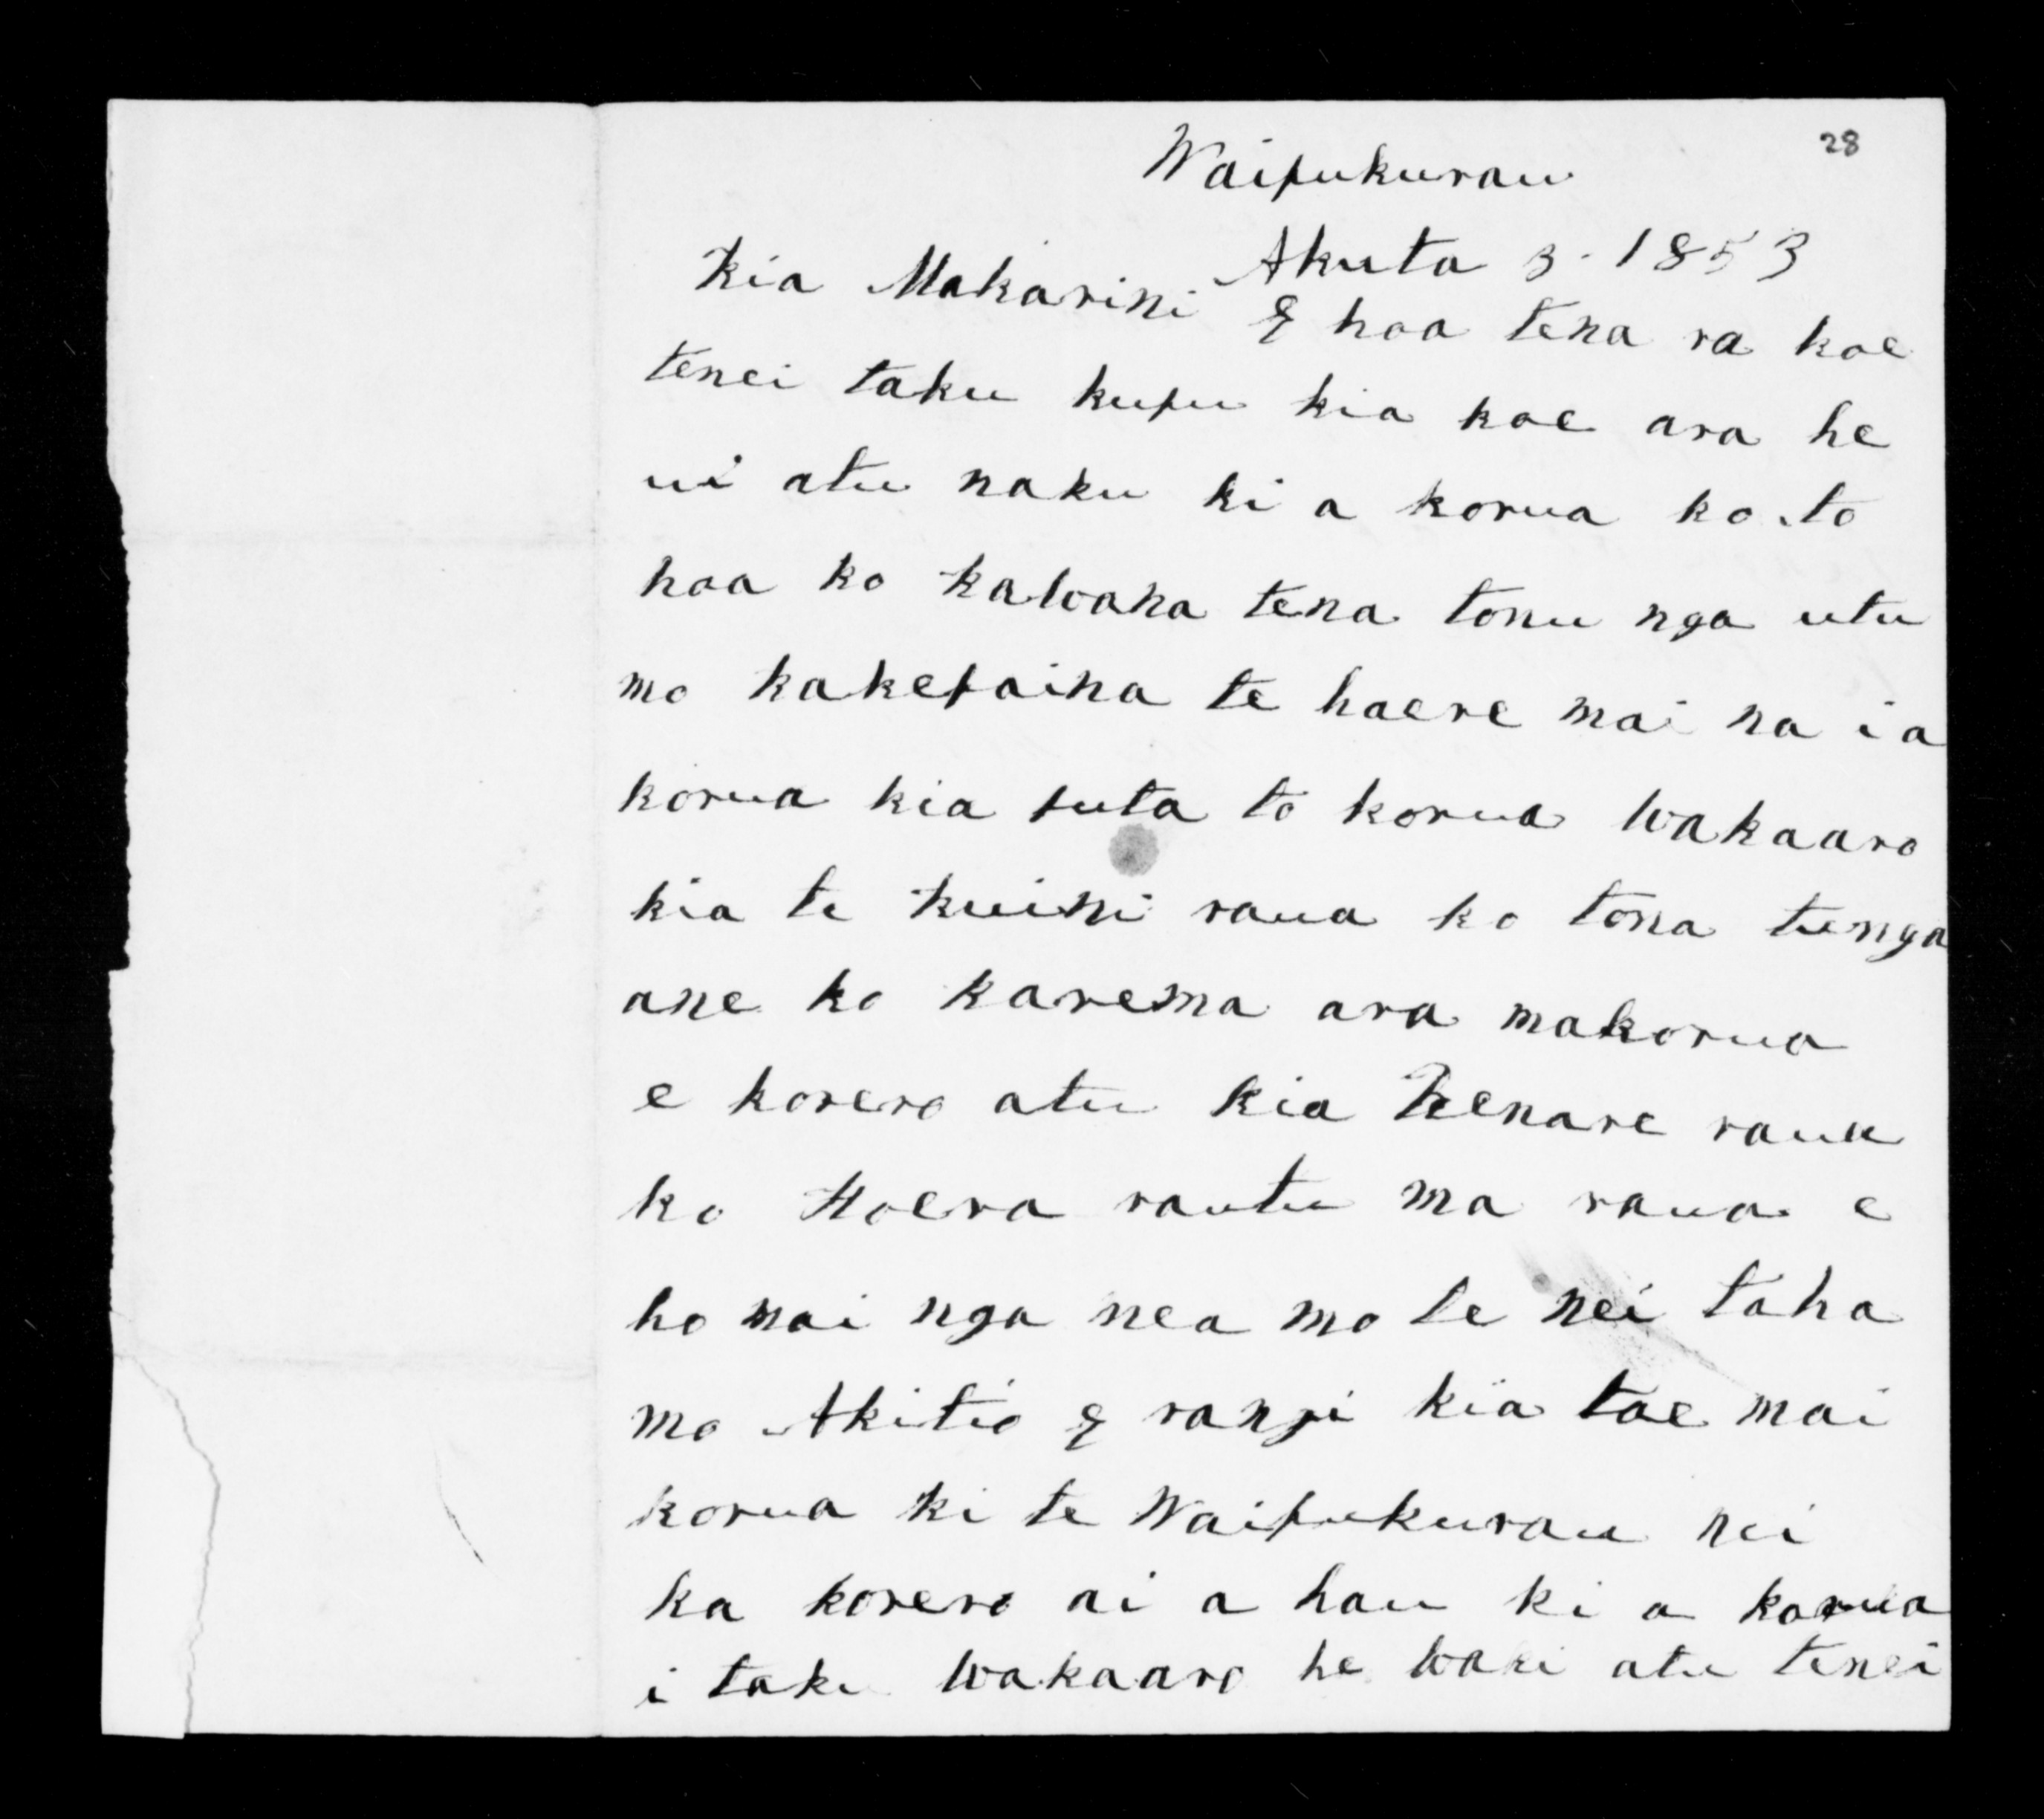 28
Waipukurau
Akuta 3. 1853
Kia Makarini E hoa tena ra koe
tenei taku kupu kia koe ara he
ui atu naku ki a korua ko to
hoa ko kawana tena tonu nga utu
mo kakepaina te haere mai na ia
korua kia puta to korua wakaaro
kia te kuini raua ko tona tunga
ane ko karema ara makorua
e korero atu kia Henare raua
ko Hoera rautu ma raua e
ho mai nga mea mo te nei taha
mo Akitio E rangi kia tae mai
korua ki te Waipukurau nei
ka korero ai a hau ki a korua
i taku wakaaro he waki atu tenei